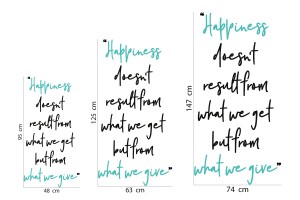 "Happiness
doesn't
result from
what we get
but from
what we give"
95 cm
48 cm
"Happiness
doesn't
result from
what we get
but from
what we give"
125 cm
63 cm
"Happiness
doesn't
result from
what we get
but from
what we give"
147 cm
74 cm